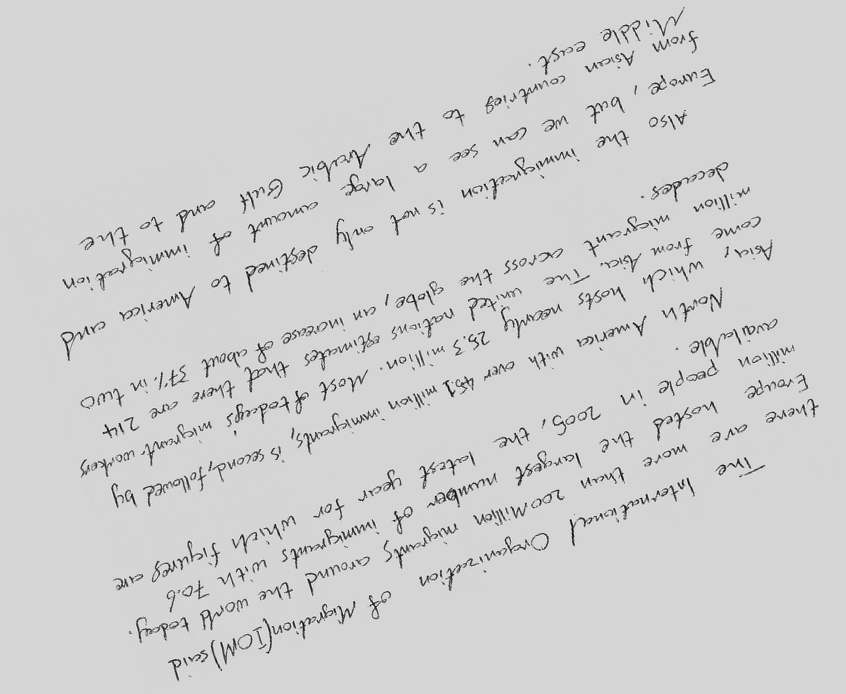 The International Organization of Migration (IOM) said
there are more than 200 Million migrants around the world today.
Eroupe hosted the largest number of immigrants with 70.6
million people in 2005, the latest year for which figures are
available.
North America with over 45.1 million immigrants, is second, followed by
Asia, which hosts nearly 25.3 million. Most of todays' migrant workers
come from Asia. The united nations estimates that there are 214
million migrant across the globe, an increase of about 37% in two
decades.
Also the immigration is not only destined to America and
Europe, but we can see a large amount of immigration
from Asian countries to the Arabic Gulf and to the
Middle east.